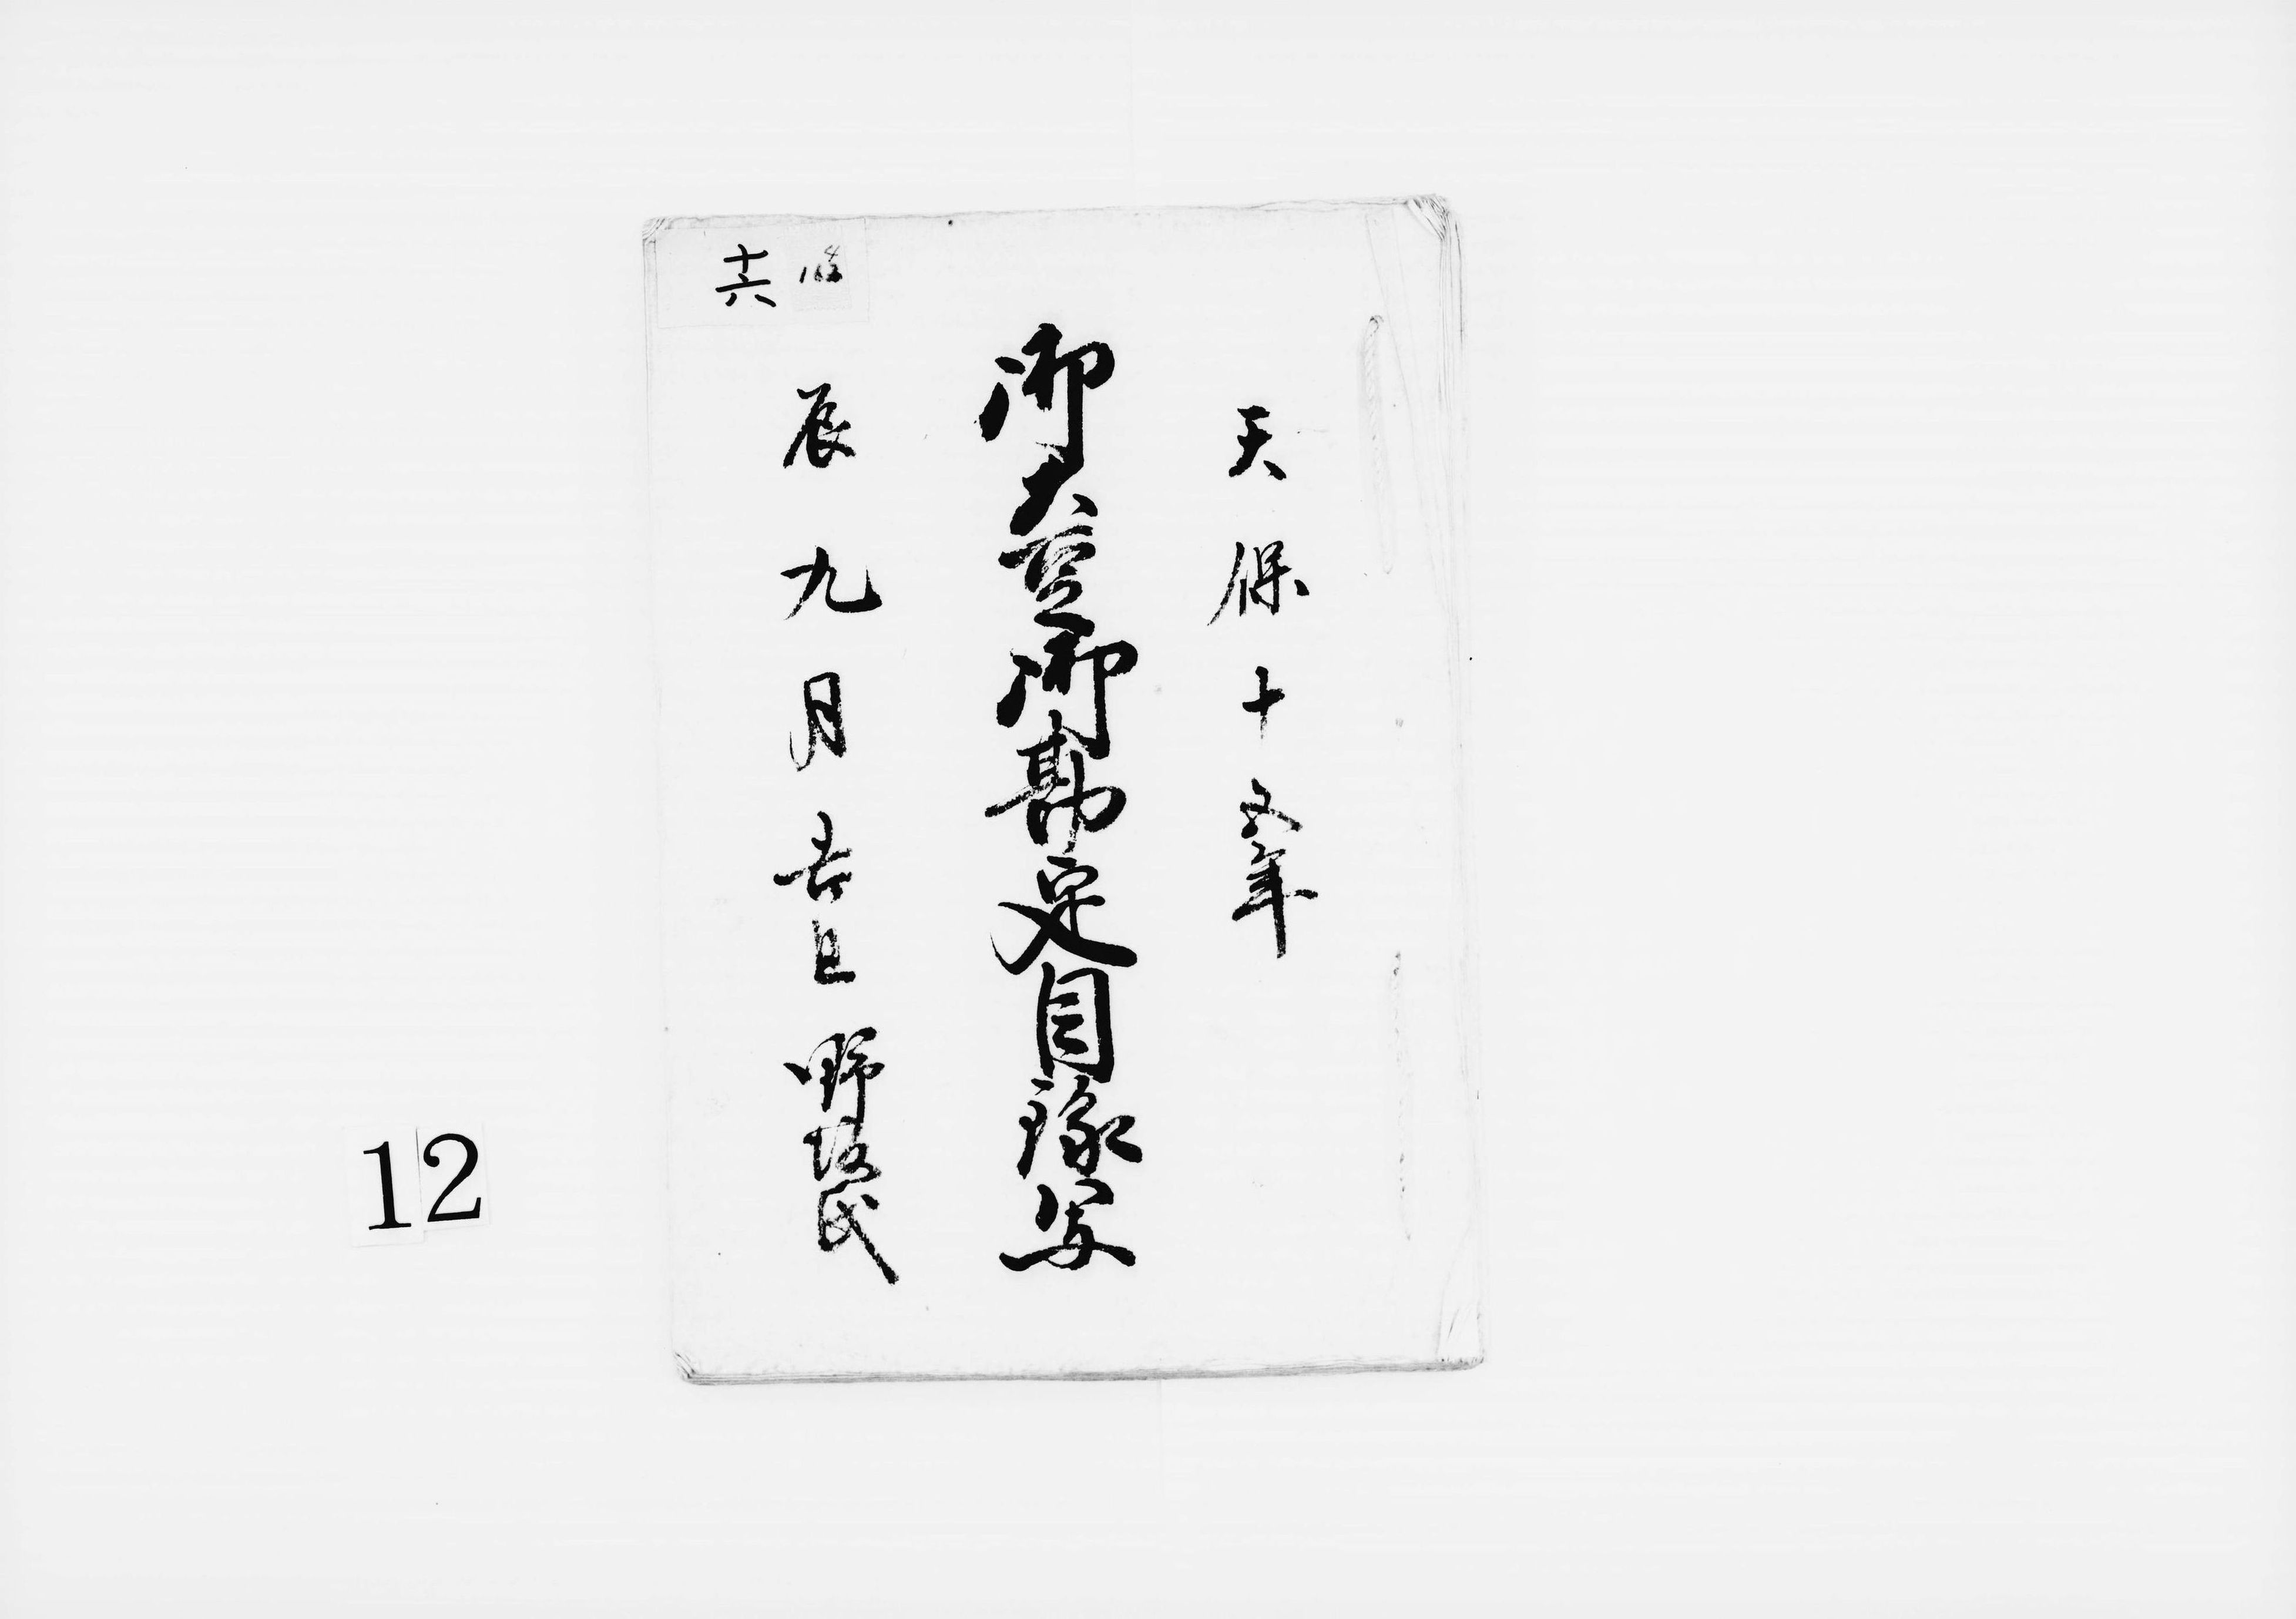 天保十五年
御大豆御勘定目録写
辰九月吉日 野坂氏
十六
12